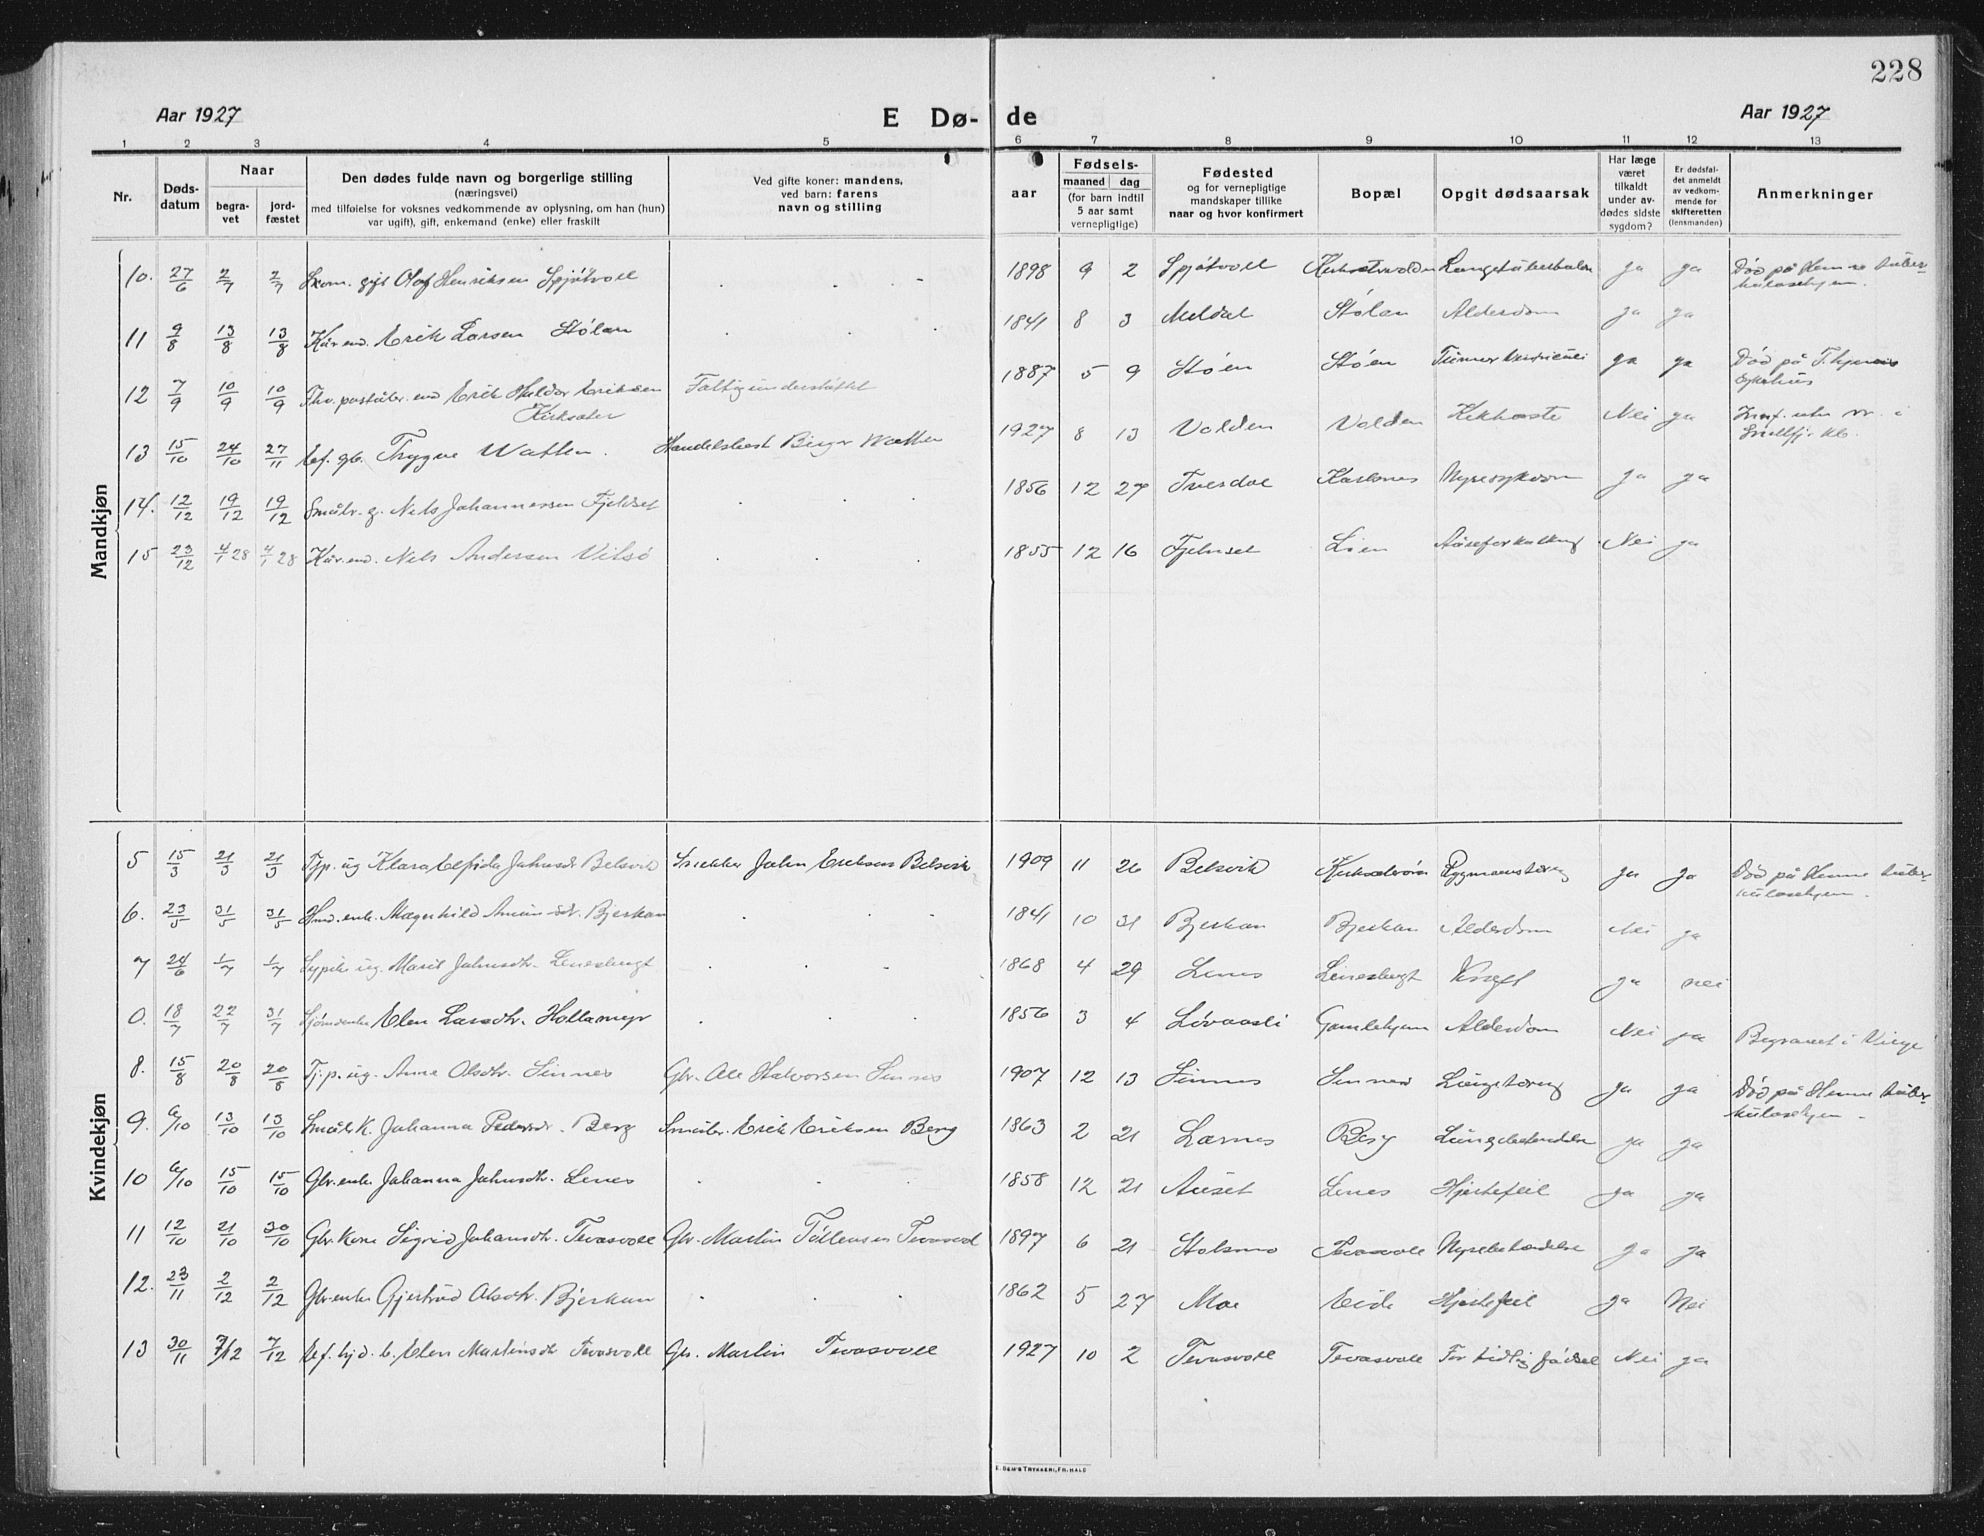 228
Aar 1927 E Dø- de Aar 1927
1 2 3 4 5 6 7 8 9 10 11 12 13
Nr.
Døds-
datum
Naar
begra-
vet
jord-
fæstet
Den dødes fulde navn og borgerlige stilling
(næringsvei)
med tilføielse for voksnes vedkommende av oplysning, om han (hun)
var ugift), gift, enkemand (enke) eller fraskilt
Ved gifte koner: mandens,
ved barn: farens
navn og stilling
aar
Fødsels-
maaned dag
(for barn indtil
5 aar samt
vernepligtige)
Fødested
og for vernepligtige
mandskaper tillike
naar og hvor konfirmert
Bopæl
Opgit dødsaarsak
Har læge
været
tilkaldt
under av-
dødes sidste
sygdom?
Er dødsfal-
det anmeldt
av vedkom-
mende for
skifteretten
(lensmanden)
Anmerkninger
Mandkjøn
10. 27/6 2/7 2/7 gift Olaf Henriksen Spjøtvoll 1898 9 2 Spjøtvoll ja ja Død på Hemne tuber-
kulosehjem.
11 9/8 13/8 13/8 Kår.enk. Erik Larsen Stølan 1841 8 3 Meldal Stølan Alderdom ja ja
12 7/9 10/9 10/9 Erik Haldor Eriksen Fattigunderstøttet 1887 5 9 Støen Støen ja ja Død på
Kirksæter sykehus
13 15/10 24/10 27/11 Trygve Watten. Birger Watten 1927 8 13 Volden Volden Kikhoste Nei ja
14. 12/12 19/12 19/12 Småbr. g. Nils Johannessen Fjeldset 1856 12 27 Nyresykdom ja ja
15 23/12 4/1 28 4/1 28 Kår.enk. Nils Andersen Vitsø 1855 12 16 Lien Åreforkalkning Nei ja
Kvindekjøn
5 15/3 21/3 21/3 Tjp. ug Klara Elfrida Johnsdr Belsvik Snekker John Eriksen Belsvik 1909 11 26 Belsvik ja ja Død på Hemne tuber-
kulosehjem.
6. 23/5 31/5 31/5 Bjerkan 1841 10 31 Bjerkan Bjerkan Alderdom Nei ja
7 24/6 1/7 1/7 ug. Marit Johnsdr. Lenesbugt 1868 4 29 Lenes Lenesbugt Kreft ja nei
0. 18/7 22/7 31/7 Elen Larsdtr. Hollamyr 1856 3 4 Løvaasli Gamlehjem Alderdom Nei ja Begravet i Vinje
8. 15/8 20/8 20/8 Tj.p. ug. Anne Olsdtr. Sinnes Gbr. Ole Halvorsen Sinnes 1907 12 13 Sinnes Sinnes Lungetæring ja ja Død på Hemne tuber-
kulosehjem.
9. 6/10 13/10 13/10 Småb.k. Johanna Pedersdr. Berg Småbr. Erik Eriksen Berg 1863 2 21 Lernes Berg Lungebetændelse ja ja
10 6/10 15/10 15/10 Gbr.enke Johanna Johnsdr. Lenes 1858 12 21 Auset Lenes Hjertefeil ja ja
11 12/10 21/10 30/10 Gbr.kone Sigrid Johansdtr. Tevasvoll Gbr. Martin Tøllefsen Tevasvol 1897 6 21 Stolsmo Tevasvoll Nyrebetændelse ja ja
12. 23/11 2/12 2/12 Gbr.enke Gjertrud Olsdtr. Bjerkan 1862 5 27 Moe Eide Hjertefeil ja Nei
13 30/11 7/12 7/12 Elen Martinsdr Tevasvoll Gbr. Martin Tevasvoll 1927 10 2 Tevasvoll Tevasvoll For tidlig fødsel Nei ja
E. SEM'S TRYKKERI, FR. HALD